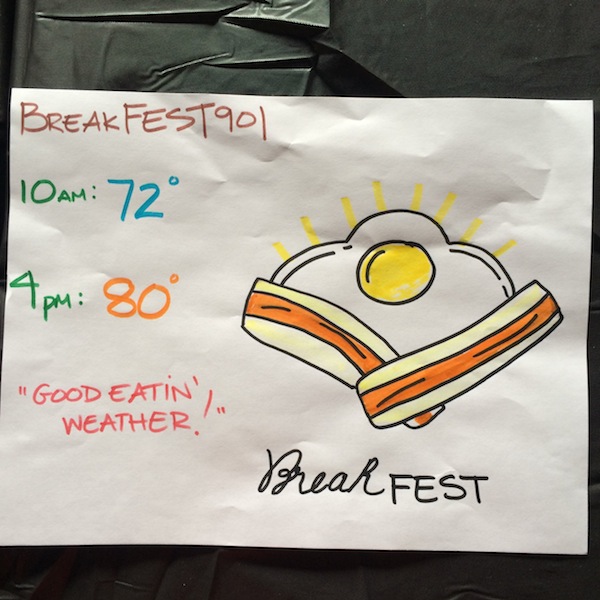 BREAKFEST901
10AM: 72°
4PM: 80°
"GOOD EATIN'
WEATHER!"
Break FEST